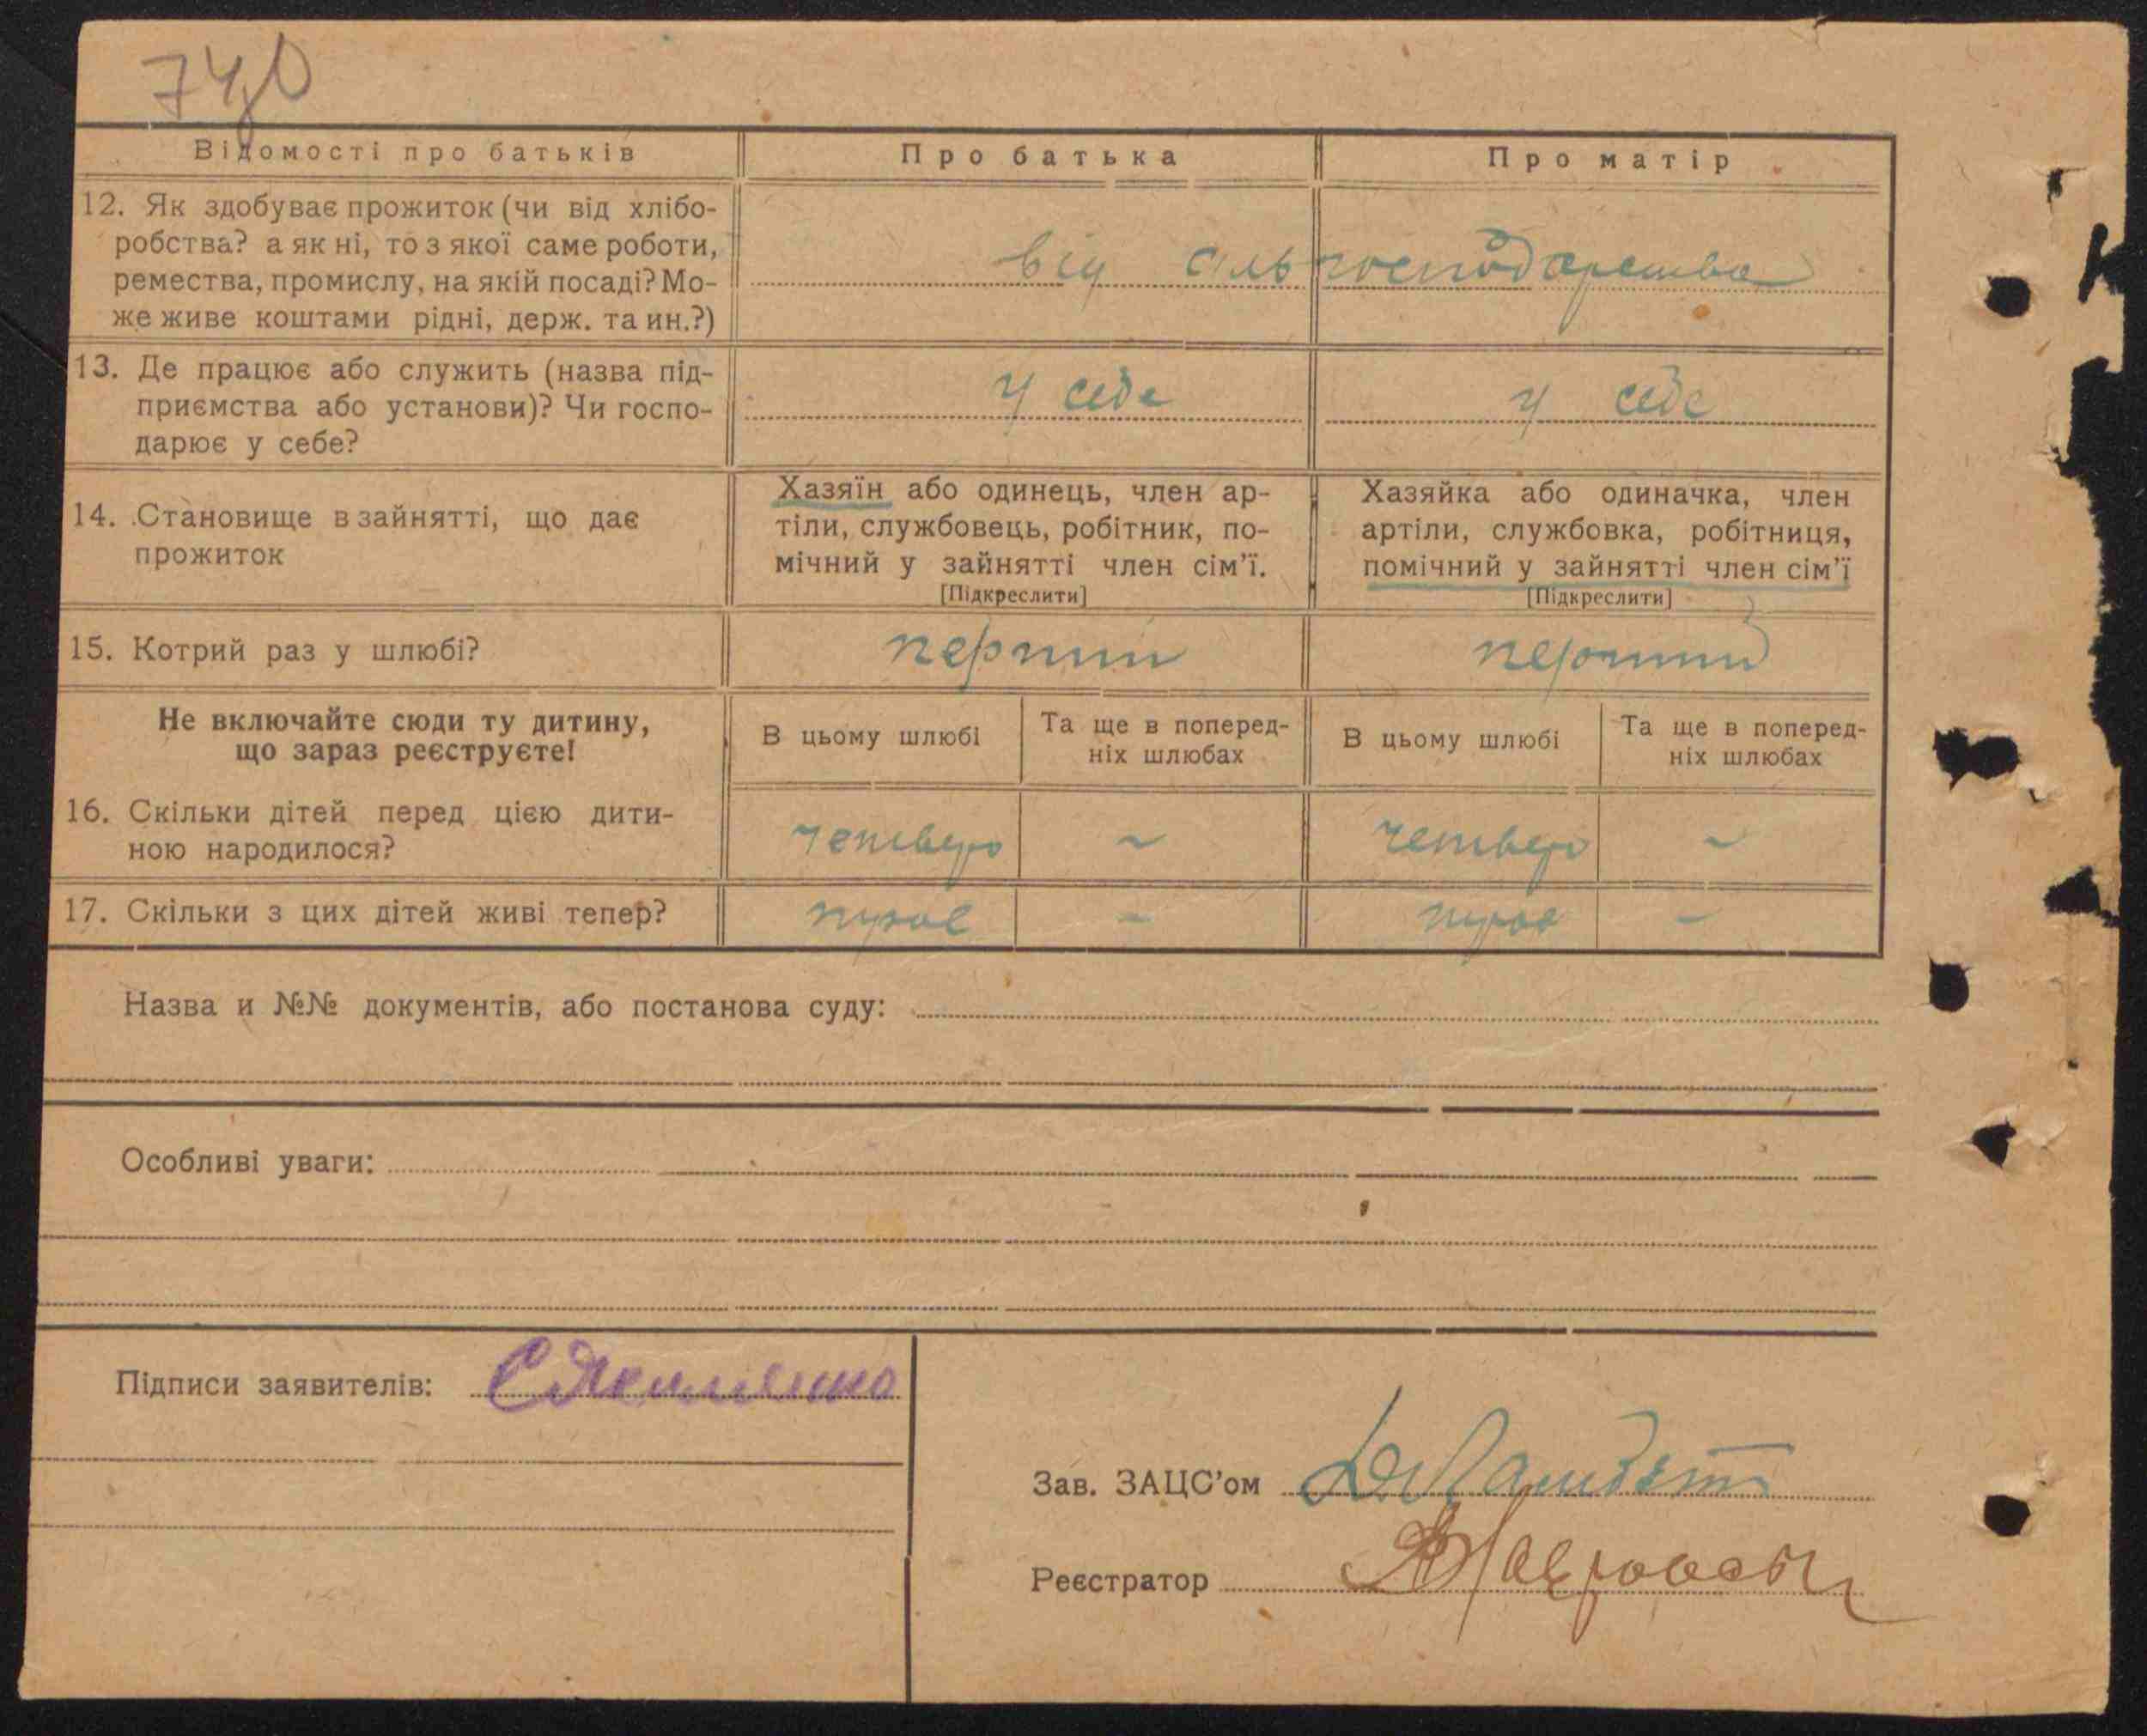 Відомості про батьків
Про батька
Про матір
12. Як здобуває прожиток (чи від хлібо-
робства? а як ні, то з якої саме роботи,
ремества, промислу, на якій посаді? Мо-
же живе коштами рідні, держ. та ин.?)
від сіль господарства
13. Де працює або служить (назва під-
приємства або установи)? Чи госпо-
дарює у себе?
у себе
у себе
14. Становище в зайнятті, що дає
прожиток
Хазяїн або одинець, член ар-
тіли, службовець, робітник, по-
мічний у зайнятті член сім'ї.
[Підкреслити]
Хазяйка або одиначка, член
артіли, службовка, робітниця,
помічний у зайнятті член сім'ї
[Підкреслити]
15. Котрий раз у шлюбі?
перший
перший
Не включайте сюди ту дитину,
що зараз реєструєте!
В цьому шлюбі
Та ще в поперед-
ніх шлюбах
В цьому шлюбі
Та ще в поперед-
ніх шлюбах
16. Скільки дітей перед цією дити-
ною народилося?
четверо
~
четверо
~
17. Скільки з цих дітей живі тепер?
троє
-
троє
-
Назва и №№ документів, або постанова суду:
Особливі уваги:
Підписи заявителів:
Зав. ЗАЦС'ом
Реєстратор